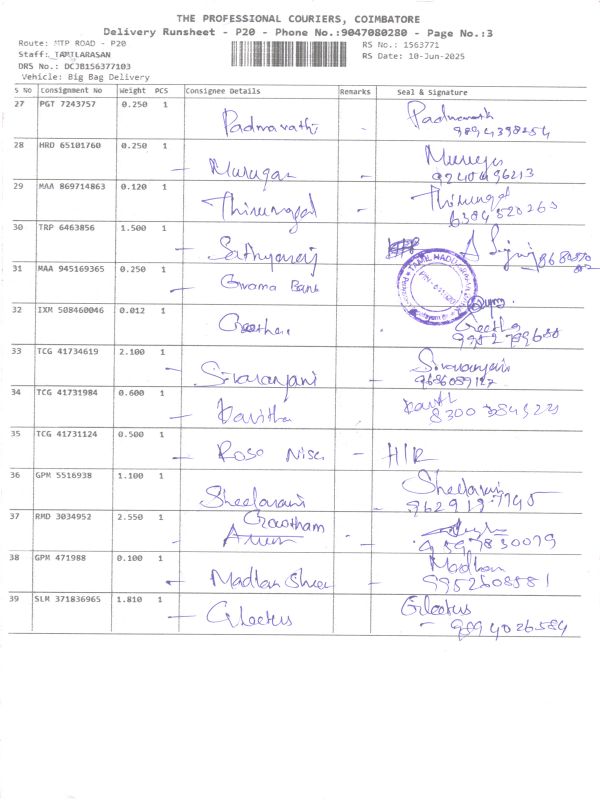 THE PROFESSIONAL COURIERS, COIMBATORE
Delivery Runsheet - P20 - Phone No.:9047080280 - Page No.:3
Route: MTP ROAD - P20 RS No.: 1563771
Staff: TAMILARASAN RS Date: 10-Jun-2025
DRS No.: DCJB156377103
Vehicle: Big Bag Delivery
S No Consignment No Weight PCS Consignee Details Remarks Seal & Signature
27 PGT 7243757 0.250 1 Padmavathi - Padmavathi
9894398254
28 HRD 65101760 0.250 1
- Murugan -
29 MAA 869714863 0.120 1
- Thirumagal - Thirumagal
6384520265
30 TRP 6463856 1.500 1
- Sathyaraj
31 MAA 945169365 0.250 1
- Bank TAMIL NADU
32 IXM 508460046 0.012 1
Geetha
33 TCG 41734619 2.100 1
- Sivaranjani - Sivaranjani
34 TCG 41731984 0.600 1
- Kavitha
8300 384522
35 TCG 41731124 0.500 1
- Rose Nisa - H/R
36 GPM 5516938 1.100 1
Sheelarani - Sheelarani
9629137745
37 RMD 3034952 2.550 1 Gowtham
- Arun - 9597830079
38 GPM 471988 0.100 1 Madhan
- Madhan - 9952608581
39 SLM 371836965 1.810 1
- Gleetus Gleetus
- 9894026584